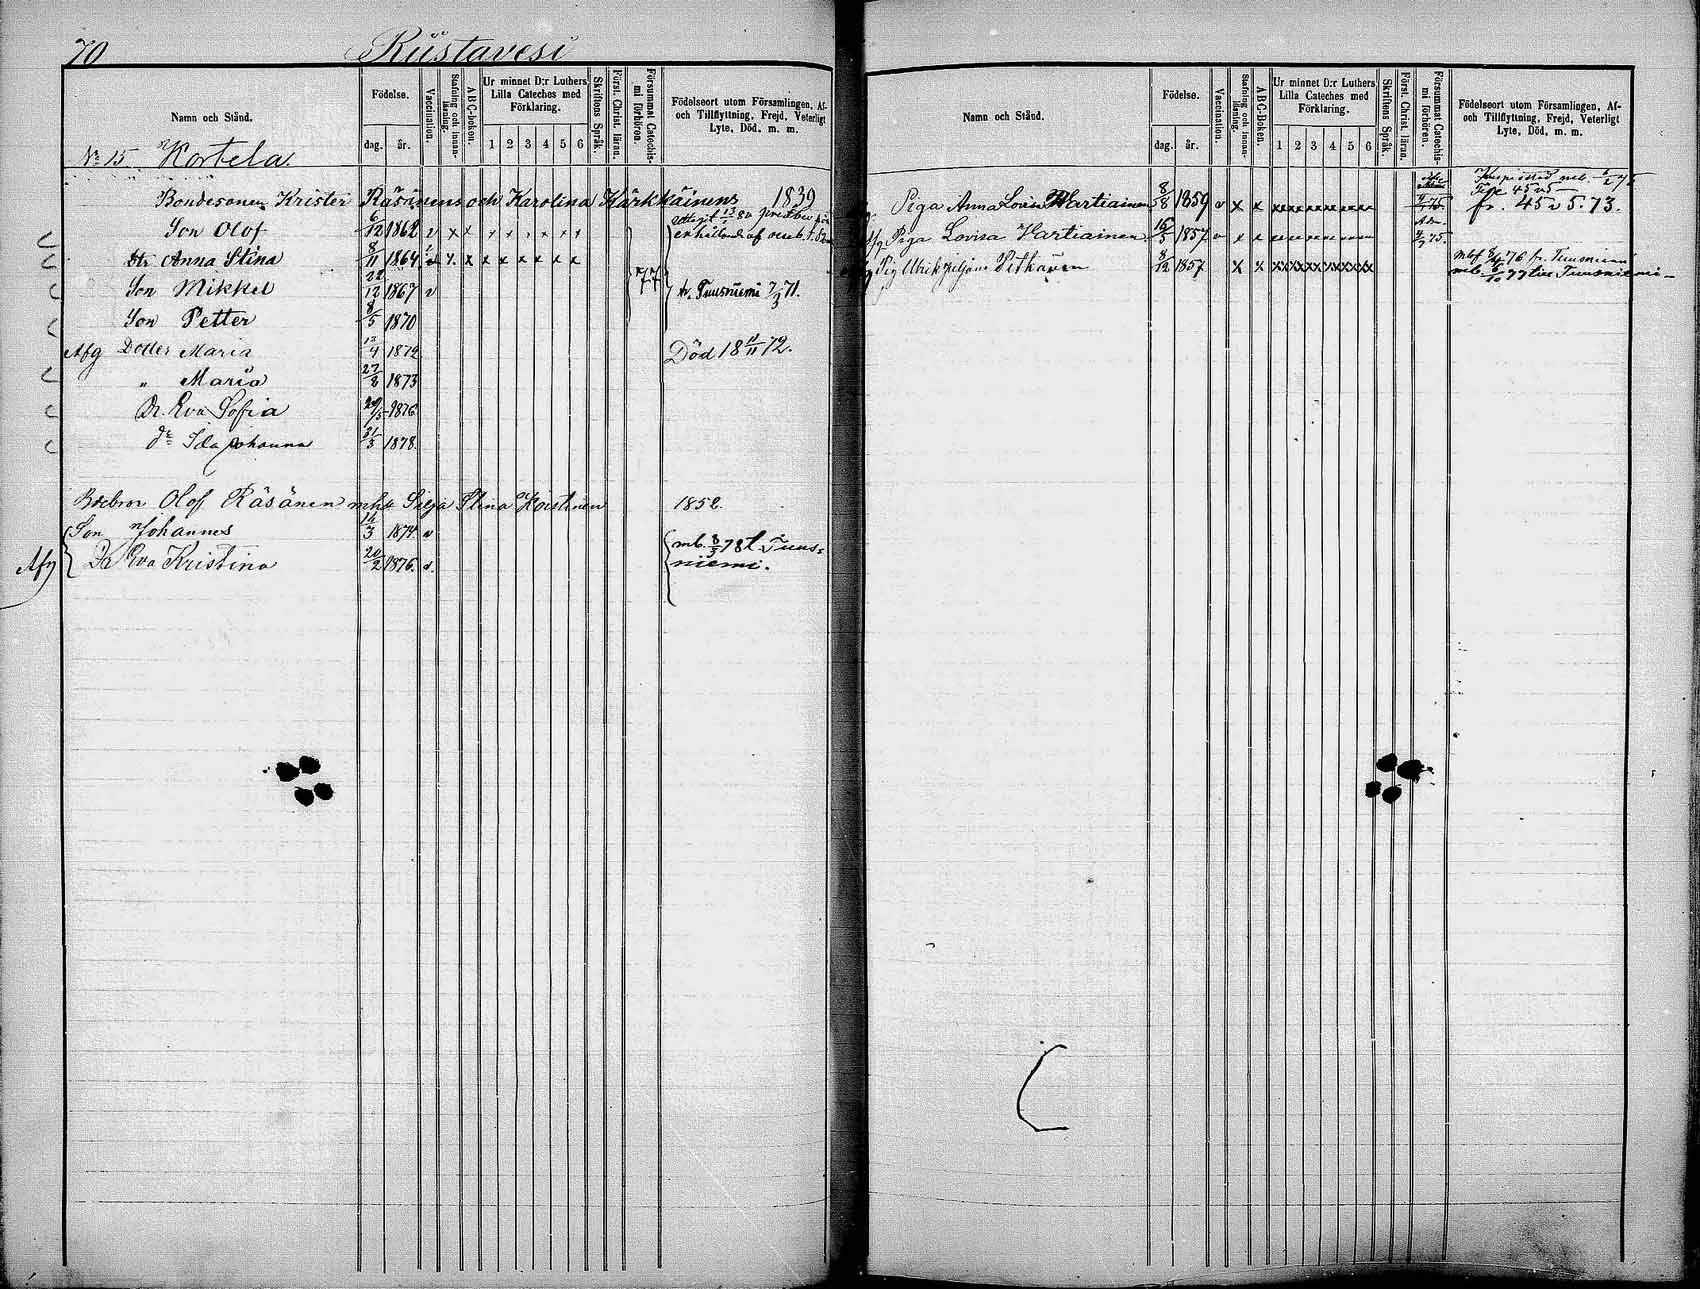 70 Riistavesi
Namn och Stånd.
Födelse.
dag. år.
Vaccination.
Stafning och innanläsning.
A B C-boken.
Ur minnet D:r Luthers Lilla Cateches med Förklaring.
1 2 3 4 5 6
Skriftens Språk.
Först. Christ. läran.
Försummat Catechismi förhören.
Födelseort utom Församlingen, Af- och Tillflyttning, Frejd, Veterligt Lyte, Död, m. m.
No 15. Kortela
Bondesonen Krister Räsänens och Karolina Kärkkäinens 1839
Son Olof 6/12 1862 v x x x x x x x x
Dr Anna Stina 8/11 1864 v x x x x x x x x
Son Mikkel 22/12 1867 v 77 fr. Tuusniemi 7/3 71.
Son Petter 8/5 1870
Afg Dotter Maria 12/4 1872 Död 18 11/11 72.
" Maria 27/8 1873
Dr. Eva Sofia 29/5 1876
dr Ida Johanna 31/3 1878
Olof Räsänen m h Silja Stina Koistinen 1852.
Son Johannes 14/3 1874 v mb. 8/3 78 t. Tuus-
Afg Dr Eva Kristina 20/2 1876. v. niemi.
Namn och Stånd.
Födelse.
dag. år.
Vaccination.
Stafning och innanläsning.
A B C-Boken.
Ur minnet D:r Luthers Lilla Cateches med Förklaring.
1 2 3 4 5 6
Skriftens Språk.
Först. Christ. läran.
Försummat Catechismi förhören.
Födelseort utom Församlingen, Af- och Tillflyttning, Frejd, Veterligt Lyte, Död, m. m.
Piga Anna Lovisa Hartiainen 8/8 1859 v x x fr. 45 v 5. 73.
Afg Piga Lovisa Hartiainen 16/5 1857 v x x 75.
8/12 1857 x x 76 fr. Tuusniemi
77 till Tuusniemi